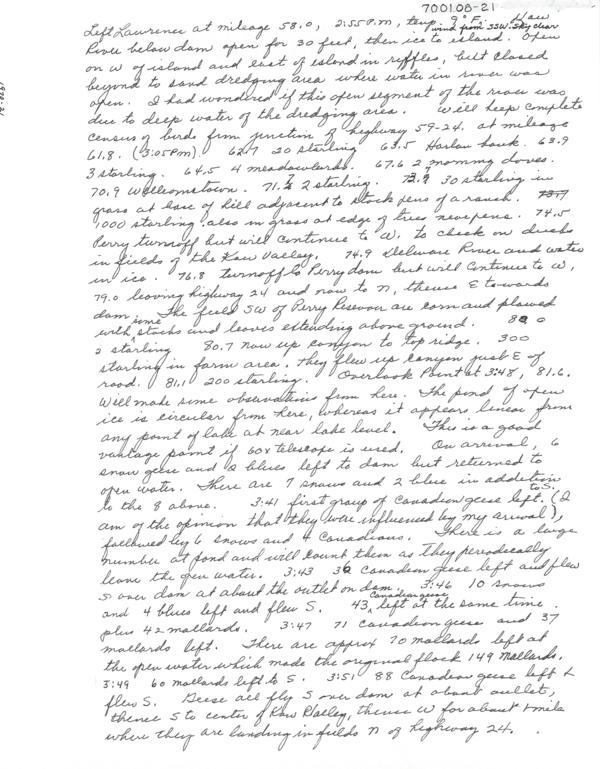 7001.08-21
Left Lawrence at mileage 58.0, 2:55 P.M., temp 9° F. Kaw
wind from SSW. Sky clear
River below dam open for 30 feet, then ice to island. Open
on W of island and east of island in riffles, but closed
beyond to sand dredging area where water in river was
open. I had wondered if this open segment of the river was
due to deep water of the dredging area. Will keep complete
census of birds from junction of highway 59-24. at mileage
61.8. (3:05 PM). 62.7 20 starling 63.5 Harlan hawk. 63.9
3 starling. 64.5 4 meadowlarks. 67.6 2 morning doves.
70.9 Williamstown. 2 starling. 30 starling in
grass at base of hill adjacent to stock pens of a ranch. 73.7
1000 starling also in grass at edge of trees near pens. 74.5
Perry turnoff but will continue to W. to check on ducks
in fields of the Kaw Valley. 74.9 Delware River and water
in ice. 76.8 turnoff to Perry dam but will continue to W,
79.0 leaving highway 24 and now to N, thence E towards
dam. The field SW of Perry Resevoir are corn and plowed
with some stocks and leaves extending above ground. 80.0
2 starling 80.7 now up canyon to top ridge. 300
starling in farm area. they flew up canyon just E of
road. 81.1 200 starling. Overlook Point at 3:48, 81.6.
Will make some observations from here. The pond of open
ice is circular from here, whereas it appears linear from
any point of lake at near lake level. This is a good
vantage point if 60x telescope is used. On arrival, 6
snow geese and 2 blues left to dam but returned to
open water. There are 7 snows and 2 blue in addition
to the 8 above. 3:41 first group of Canadian geese left to S. (I
am of the opinion that they were influenced by my arrival),
followed by 6 snows and 4 Canadians. There is a large
number at pond and will count them as they periodically
leave the open water. 3:43 32 Canadian geese left and flew
S over dam at about the outlet on dam. 3:46 10 snows
and 4 blues left and flew S. 43 Canadian geese left at the same time
plus 42 mallards. 3:47 71 Canadian geese and 37
mallards left. There are approx 70 mallards left at
the open water which made the original flock 149 mallards.
3:49 60 mallards left to S. 3:51 88 Canadian geese left &
flew S. Geese all fly S over dam at about oullet,
thence S to center of Kaw Valley, thence W for about 1 mile
where they are landing in fields N of highway 24.